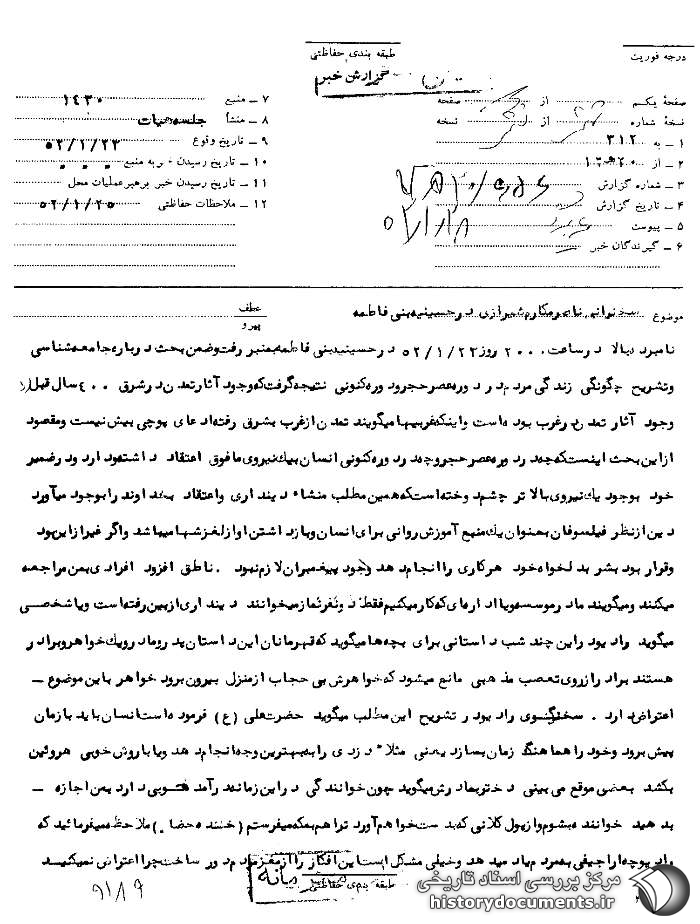 طبقه بندی حفاظتی
گزارش خبر
درجه فوریت
صفحهٔ یکم از صفحه
نسخهٔ شماره از نسخه
۱ ـ به ۳۱۲
۲ ـ از
۳ ـ شماره گزارش
۴ ـ تاریخ گزارش
۵ ـ پیوست
۶ ـ گیرندگان خبر
۷ ـ منبع ۱۴۳۰
۸ ـ منشأ جلسه هیات
۹ ـ تاریخ وقوع ۵۲/۱/۲۳
۱۰ ـ تاریخ رسیدن خبر به منبع
۱۱ ـ تاریخ رسیدن خبر برهبر عملیات محل
۱۲ ـ ملاحظات حفاظتی ۵۲/۱/۲۵
موضوع سخنرانی ناصر مکارم شیرازی در حسینیه بنی فاطمه
عطف
پیرو
نامبرده بالا در ساعت ۲۰۰۰ روز ۵۲/۱/۲۳ در حسینیه بنی فاطمه بمنبر رفت و ضمن بحث درباره جامعه شناسی
و تشریح چگونگی زندگی مردم در دوره عصر حجر و دوره کنونی نتیجه گرفت که وجود آثار تمدن در شرق ۴۰۰ سال قبل از
وجود آثار تمدن در غرب بوده است و اینکه غربیها میگویند تمدن از غرب بشرق رفته ادعای پوچی بیش نیست و مقصود
از این بحث اینست که چه در دوره عصر حجر و چه در دوره کنونی انسان بیک نیروی مافوق اعتقاد داشته و دارد و در ضمیر
خود بوجود یک نیروی بالاتر چشم دوخته است که همین مطلب منشاء دینداری و اعتقاد بخداوند را بوجود میآورد
دین از نظر فیلسوفان بعنوان یک منبع آموزش روانی برای انسان و بازداشتن او از لغزشها میباشد و اگر غیر از این بود
و قرار بود بشر بدلخواه خود هرکاری را انجام دهد وجود پیغمبران لازم نبود . ناطق افزود افرادی بمن مراجعه
میکنند و میگویند ما در موسسه و یا اداره ای که کار میکنیم فقط دو نفر نماز میخوانند دینداری از بین رفته است و یا شخصی
میگوید رادیو در این چند شب داستانی برای بچه ها میگوید که قهرمانان این داستان پدر و مادر و یک خواهر و برادر
هستند برادر از روی تعصب مذهبی مانع میشود که خواهرش بی حجاب از منزل بیرون برود خواهر باین موضوع ـ
اعتراض دارد . سخنگوی رادیو در تشریح این مطلب میگوید حضرت علی (ع) فرموده است انسان باید با زمان
پیش برود و خود را هماهنگ زمان بسازد یعنی مثلاً دزدی را به بهترین وجه انجام دهد و یا با روش خوبی هروئین
بکشد بعضی موقع می بینی دختر بمادرش میگوید چون خوانندگی در این زمانه درآمد خوبی دارد بمن اجازه ـ
بدهید خواننده بشوم و از پول کلانی که بدست خواهم آورد ترا هم بمکه میفرستم (خنده حضار) ملاحظه میفرمائید که
رادیو چه اراجیفی بمردم یاد میدهد و خیلی مشکل است این افکار را از مغز مردم دور ساخت چرا اعتراض نمیکنید
طبقه بندی حفاظتی
۹۱۸۹
مرکز بررسی اسناد تاریخی
historydocuments.ir